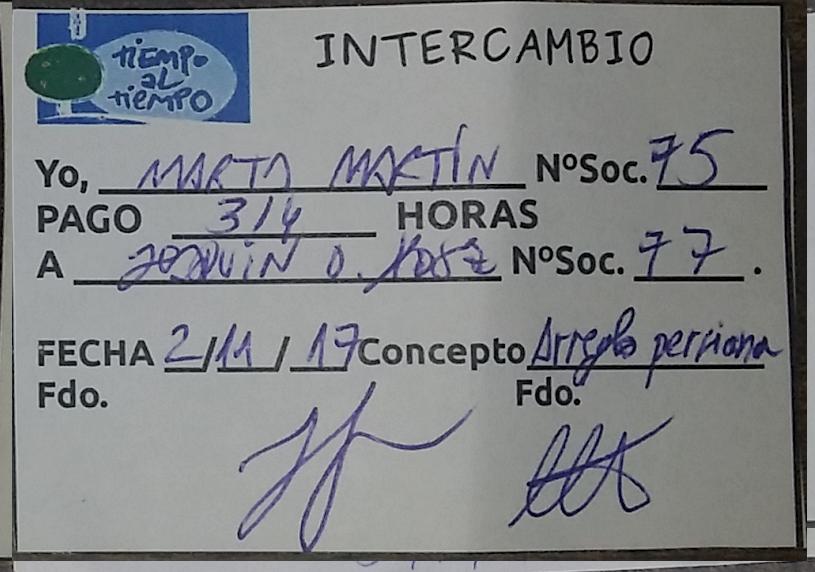 tiempo
al
tiempo
INTERCAMBIO
Yo, MARTA MARTÍN NºSoc. 75
PAGO 3/4 HORAS
A JOAQUIN O. NºSoc. 77.
FECHA 2/11/17 Concepto Arreglo persiana
Fdo. Fdo.